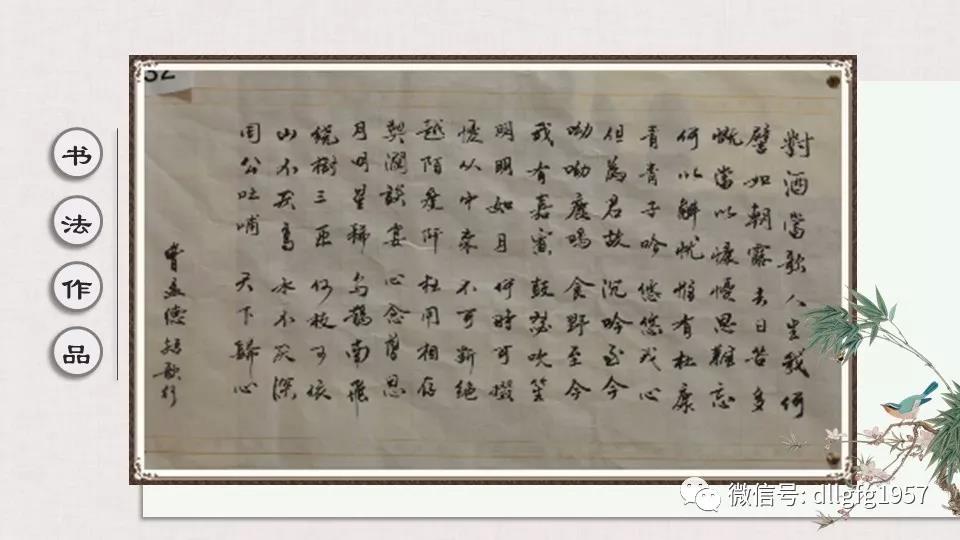 书法作品
32
對酒當歌人生幾何
譬如朝露去日苦多
慨當以慷憂思難忘
何以解忧惟有杜康
青青子吟悠悠我心
但為君故沉吟至今
呦呦鹿鳴食野至今
我有嘉賓鼓瑟吹笙
明明如月何時可掇
憂从中來不可断絕
越陌度阡杜用相存
契濶談宴心念舊恩
月明星稀烏鵲南飛
繞樹三匝何枝可依
山不厌高水不厌深
周公吐哺天下歸心
曹孟德短歌行
微信号: dllgfg1957